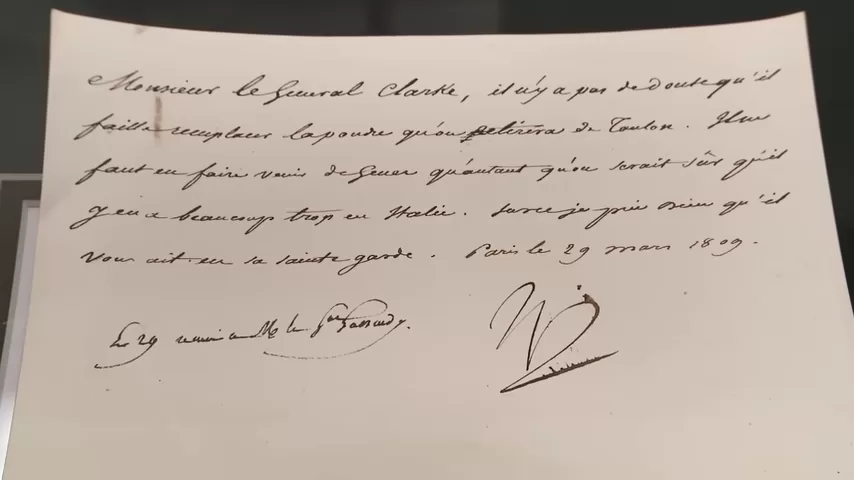 Monsieur le General Clarke, il n'y a pas de doute qu'il
faille remplacer la poudre qu'on retirera de Toulon. Il ne
faut en faire venir de Genes qu'autant qu'on serait sûr qu'il
y en a beaucoup trop en Italie. Sur ce je prie Dieu qu'il
vous ait en sa sainte garde. Paris le 29 mars 1809.
Le 29 remis a Mr le Gal